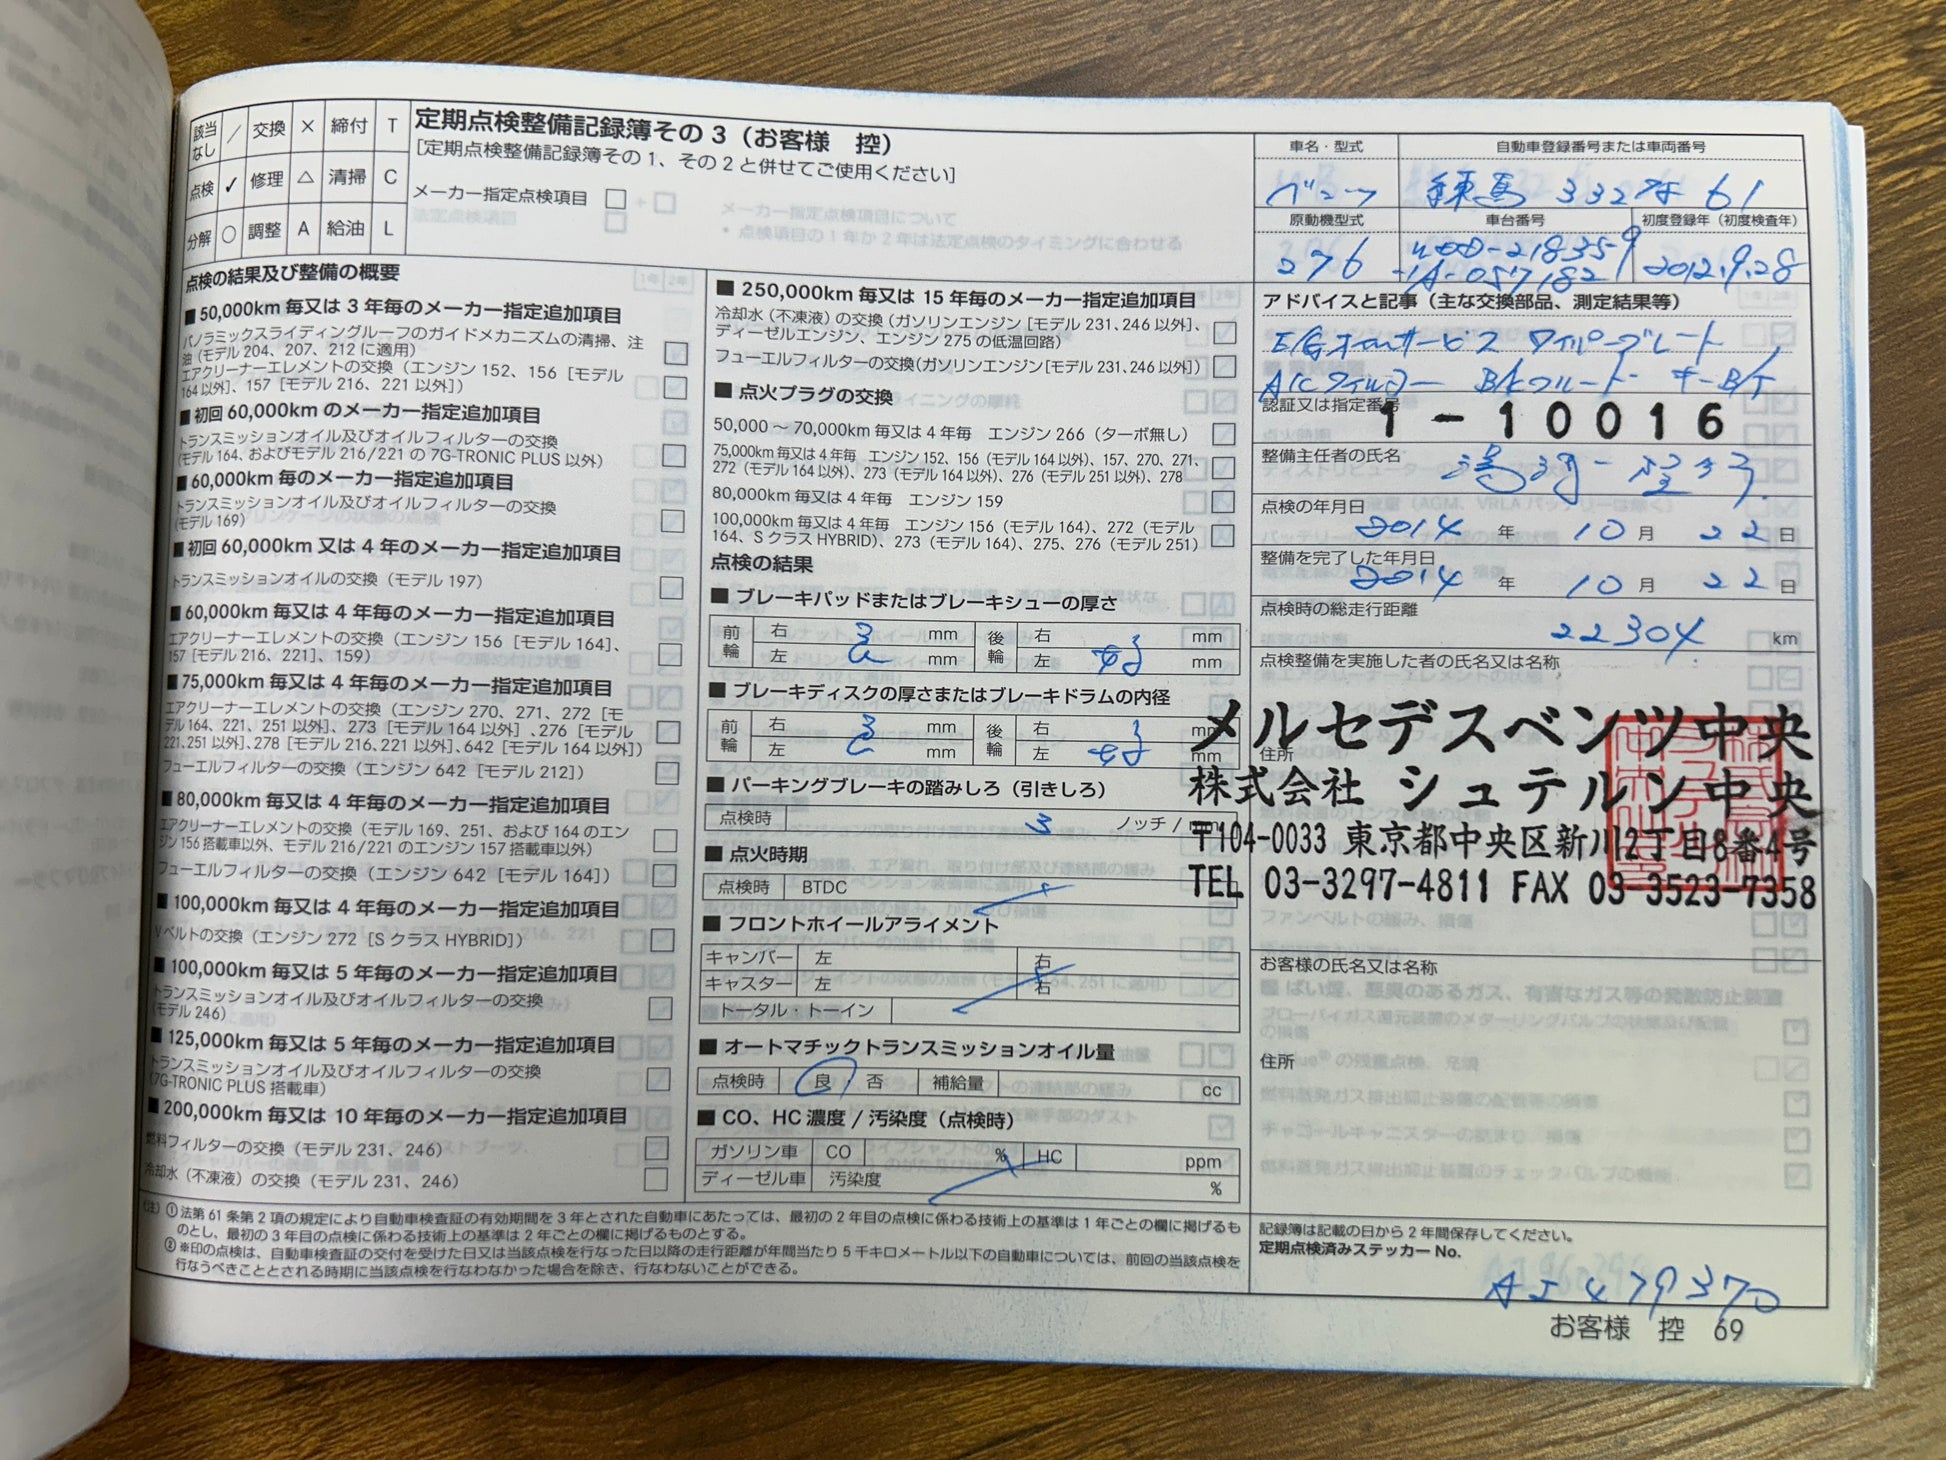 該当なし ／ 交換 × 締付 T
点検 ✓ 修理 △ 清掃 C
分解 ○ 調整 A 給油 L
定期点検整備記録簿その3（お客様　控）
［定期点検整備記録簿その1、その2と併せてご使用ください］
メーカー指定点検項目 □
点検の結果及び整備の概要
■ 50,000km毎又は3年毎のメーカー指定追加項目
パノラミックスライディングルーフのガイドメカニズムの清掃、注
油（モデル204、207、212に適用） □
エアクリーナーエレメントの交換（エンジン152、156［モデル
164以外］、157［モデル216、221以外］） □
■ 初回60,000kmのメーカー指定追加項目
トランスミッションオイル及びオイルフィルターの交換
（モデル164、およびモデル216/221の7G-TRONIC PLUS以外） □
■ 60,000km毎のメーカー指定追加項目
トランスミッションオイル及びオイルフィルターの交換
（モデル169） □
■ 初回60,000km又は4年毎のメーカー指定追加項目
トランスミッションオイルの交換（モデル197） □
■ 60,000km毎又は4年毎のメーカー指定追加項目
エアクリーナーエレメントの交換（エンジン156［モデル164］、
157［モデル216、221］、159） □
■ 75,000km毎又は4年毎のメーカー指定追加項目
エアクリーナーエレメントの交換（エンジン270、271、272［モ
デル164、221、251以外］、273［モデル164以外］、276［モデル
221、251以外］、278［モデル216、221以外］、642［モデル164以外］） □
フューエルフィルターの交換（エンジン642［モデル212］） □
■ 80,000km毎又は4年毎のメーカー指定追加項目
エアクリーナーエレメントの交換（モデル169、251、および164のエン
ジン156搭載車以外、モデル216/221のエンジン157搭載車以外） □
フューエルフィルターの交換（エンジン642［モデル164］） □
■ 100,000km毎又は4年毎のメーカー指定追加項目
Vベルトの交換（エンジン272［SクラスHYBRID］） □
■ 100,000km毎又は5年毎のメーカー指定追加項目
トランスミッションオイル及びオイルフィルターの交換
（モデル246） □
■ 125,000km毎又は5年毎のメーカー指定追加項目
トランスミッションオイル及びオイルフィルターの交換
（7G-TRONIC PLUS搭載車） □
■ 200,000km毎又は10年毎のメーカー指定追加項目
燃料フィルターの交換（モデル231、246） □
冷却水（不凍液）の交換（モデル231、246） □
■ 250,000km毎又は15年毎のメーカー指定追加項目
冷却水（不凍液）の交換（ガソリンエンジン［モデル231、246以外］、
ディーゼルエンジン、エンジン275の低温回路） □
フューエルフィルターの交換（ガソリンエンジン［モデル231、246以外］） □
■ 点火プラグの交換
50,000～70,000km毎又は4年毎　エンジン266（ターボ無し） □
75,000km毎又は4年毎　エンジン152、156（モデル164以外）、157、270、271、
272（モデル164以外）、273（モデル164以外）、276（モデル251以外）、278 □
80,000km毎又は4年毎　エンジン159 □
100,000km毎又は4年毎　エンジン156（モデル164）、272（モデル
164、SクラスHYBRID）、273（モデル164）、275、276（モデル251） □
点検の結果
■ ブレーキパッドまたはブレーキシューの厚さ
前輪 右 mm 後輪 右 mm
左 mm 左 mm
■ ブレーキディスクの厚さまたはブレーキドラムの内径
前輪 右 mm 後輪 右 mm
左 mm 左 mm
■ パーキングブレーキの踏みしろ（引きしろ）
点検時 3 ノッチ / mm
■ 点火時期
点検時 BTDC
■ フロントホイールアライメント
キャンバー 左 右
キャスター 左 右
トータル・トーイン
■ オートマチックトランスミッションオイル量
点検時 良・否 補給量 cc
■ CO、HC濃度 / 汚染度（点検時）
ガソリン車 CO % HC ppm
ディーゼル車 汚染度 %
車名・型式 自動車登録番号または車両番号
ベンツ 練馬 332 61
原動機型式 車台番号 初度登録年（初度検査年）
276 WDD-218359 2012.9.28
-1A-057182
アドバイスと記事（主な交換部品、測定結果等）
E/Gオイルサービス ワイパーブレード
A/Cフィルター B/Kフルード
認証又は指定番号
1-10016
整備主任者の氏名
点検の年月日
2014 年 10 月 22 日
整備を完了した年月日
2014 年 10 月 22 日
点検時の総走行距離
22304 km
点検整備を実施した者の氏名又は名称
メルセデスベンツ中央
住所
株式会社 シュテルン中央
〒104-0033 東京都中央区新川2丁目8番4号
TEL 03-3297-4811 FAX 03-3523-7358
お客様の氏名又は名称
住所
（注）① 法第61条第2項の規定により自動車検査証の有効期間を3年とされた自動車にあたっては、最初の2年目の点検に係わる技術上の基準は1年ごとの欄に掲げるも
のとし、最初の3年目の点検に係わる技術上の基準は2年ごとの欄に掲げるものとする。
② ※印の点検は、自動車検査証の交付を受けた日又は当該点検を行なった日以降の走行距離が年間当たり5千キロメートル以下の自動車については、前回の当該点検を
行なうべきこととされる時期に当該点検を行なわなかった場合を除き、行なわないことができる。
記録簿は記載の日から2年間保存してください。
定期点検済みステッカー No.
AI479370
お客様　控　69